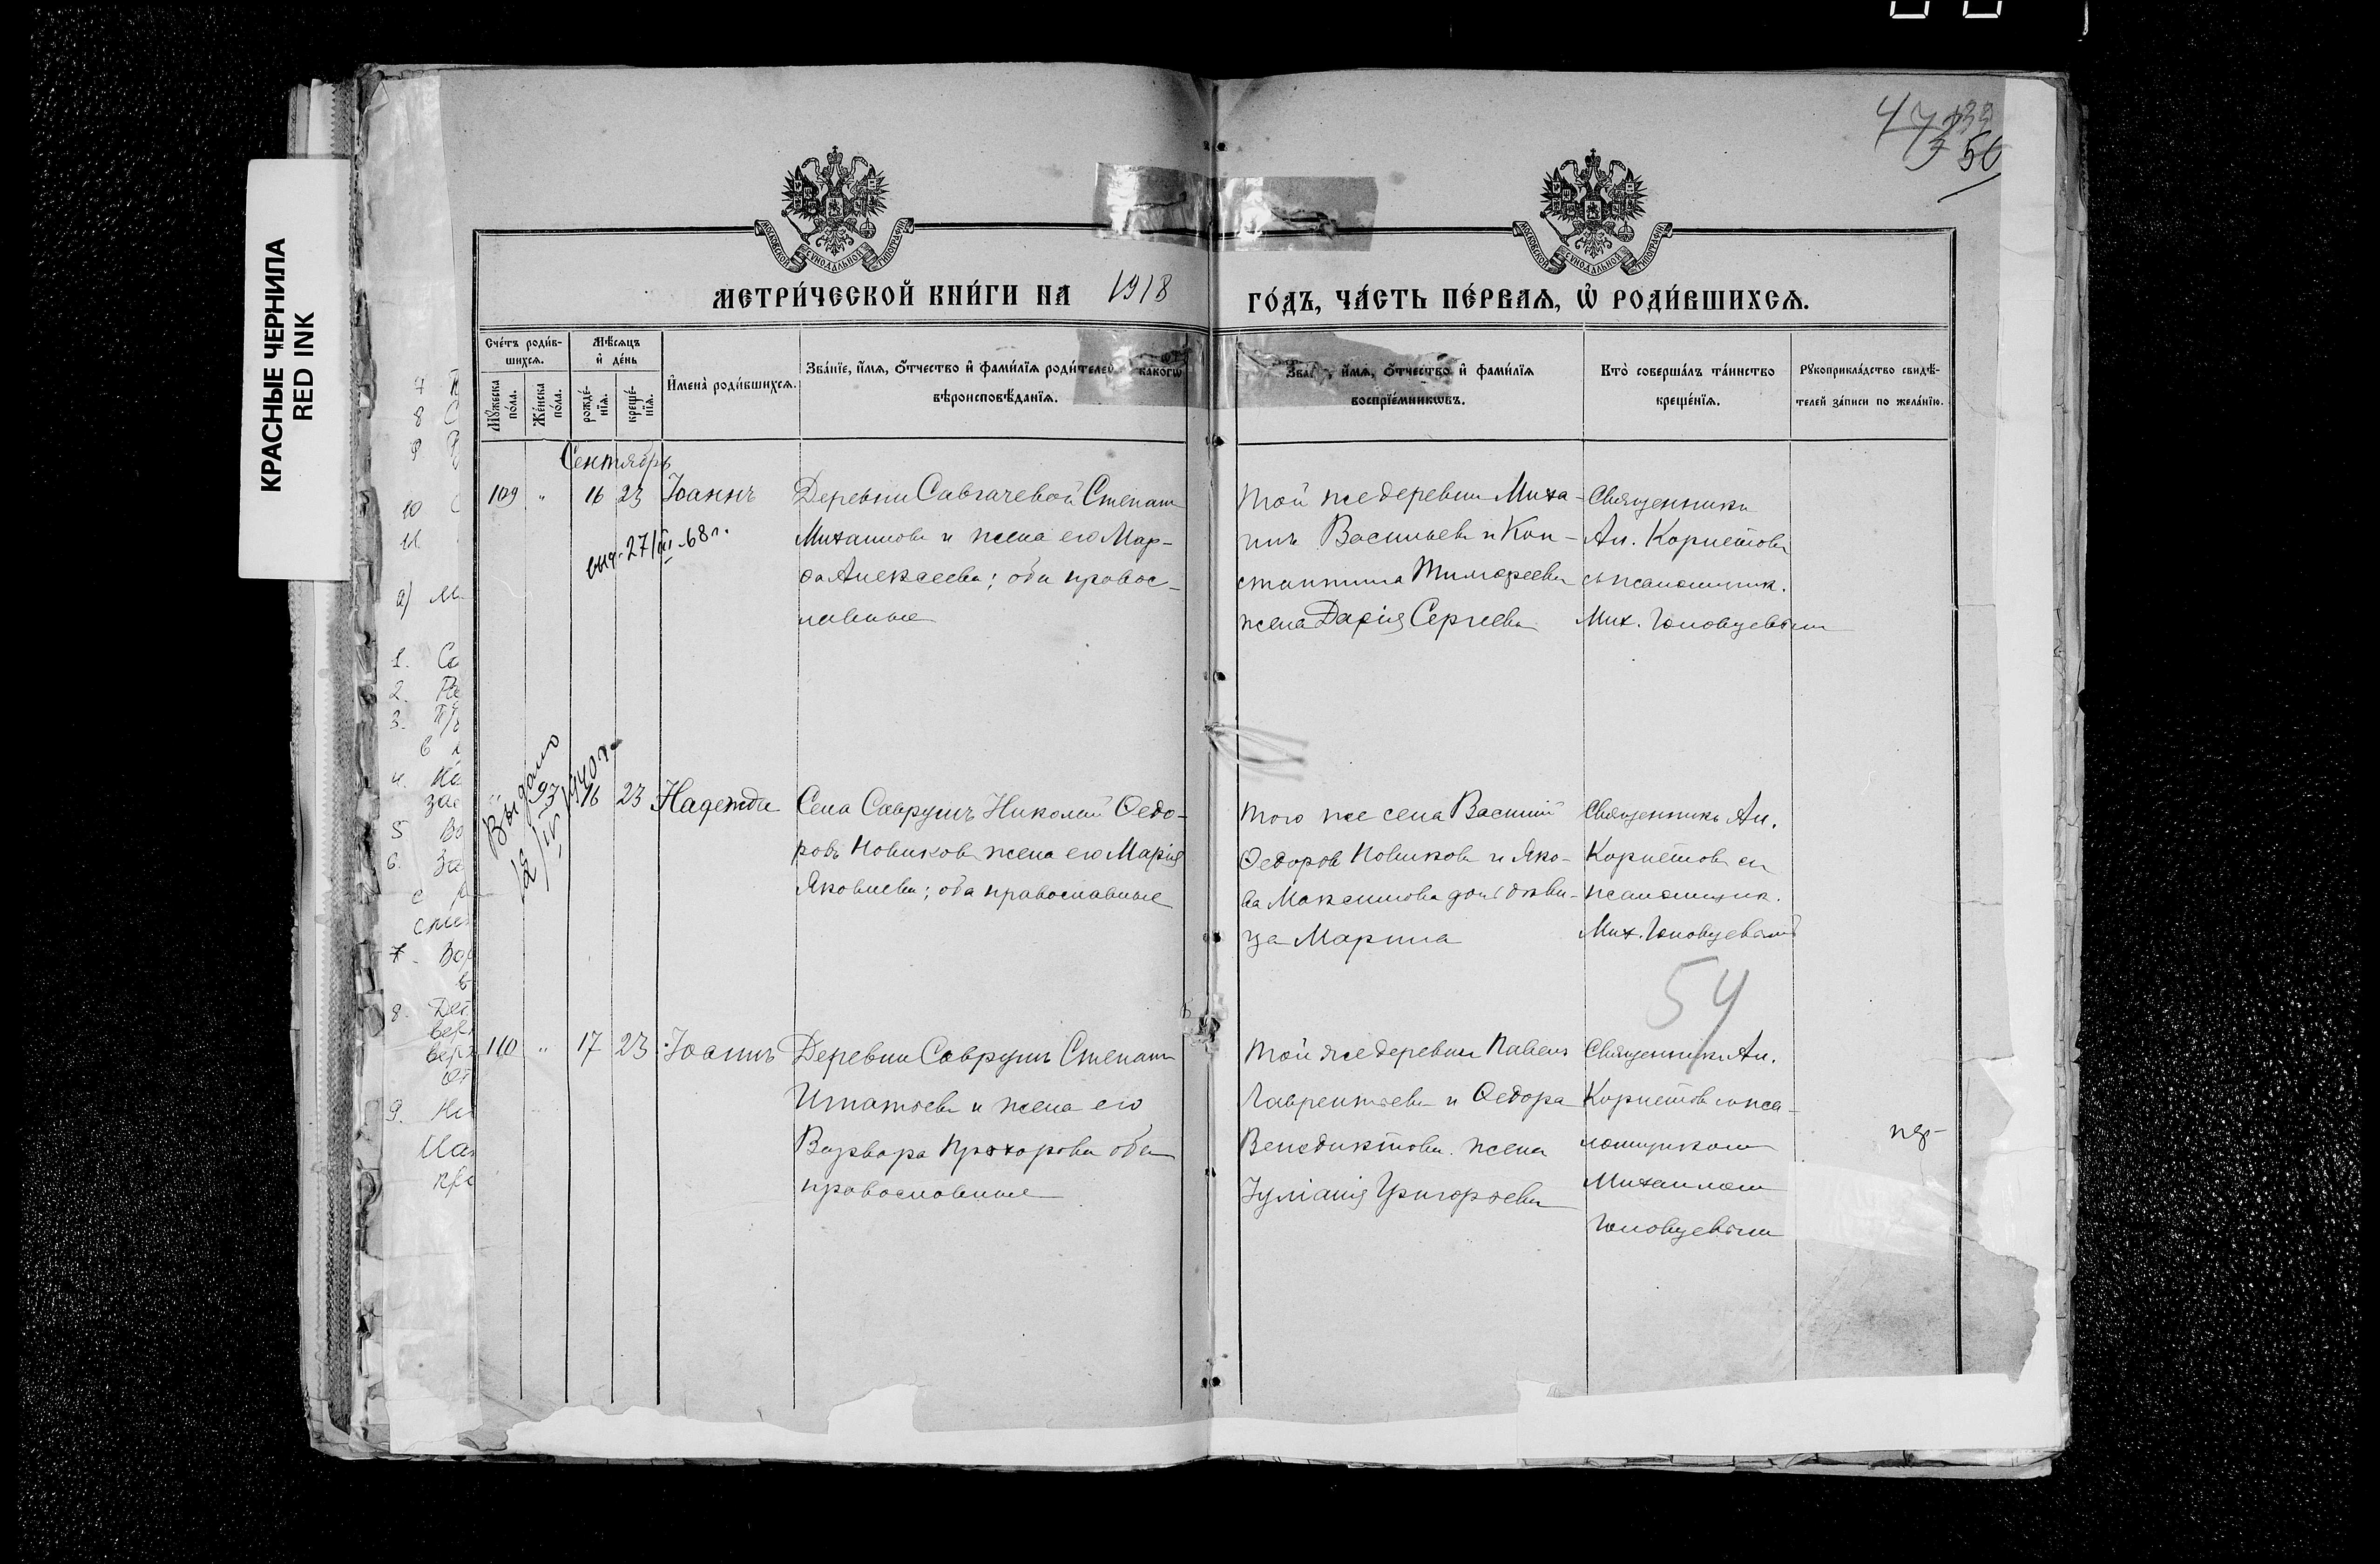 КРАСНЫЕ ЧЕРНИЛА
RED INK
50
МОСКОВСКОЙ СѴНОДАЛЬНОЙ ТИПОГРАФІИ
МОСКОВСКОЙ СѴНОДАЛЬНОЙ ТИПОГРАФІИ
МЕТРИ́ЧЕСКОЙ КНИ́ГИ НА 1918 ГО́ДЪ, ЧА́СТЬ ПЕ́РВАѦ, Ѡ҆ РОДИ́ВШИХСѦ.
Сче́тъ роди́в-
шихсѧ.
Мꙋжеска по́ла.
Же́нска по́ла.
Мѣ́сѧцъ и҆ де́нь
рожде́-нїѧ.
креще́-нїѧ.
И҆мена̀ роди́вшихсѧ.
Зва́нїе, и҆́мѧ, ѻ҆́тчество и҆ фами́лїѧ роди́телей какогѡ
вѣроисповѣ́данїѧ.
и҆́мѧ, ѻ҆́тчество и҆ фами́лїѧ
воспрїе́мникѡвъ.
Кто̀ соверша́лъ та́инство
креще́нїѧ.
Рꙋкоприкла́дство свидѣ́-
телей за́писи по жела́нїю.
Сентябрь
109 " 16 23 Іоаннъ
выд. 27/III-68 г.
Деревни Савгачевой Степанъ
Михаиловъ и жена его Мар-
ѳа Алексеева; оба правос-
лавные
Той же деревни Миха-
илъ Васильевъ и Кон-
стантина Тимофеева
жена Дарія Сергеева
Священникъ
Ал. Корнетовъ
съ псаломщик.
Мих. Головцевымъ
" 93 16 23 Надежда
Выдано
12/IV 1940 г.
Села Саврушъ Николай Ѳедо-
ровъ Новиковъ жена его Марія
Яковлева; оба православные
Того же села Василій
Ѳедоровъ Новиковъ и Яко-
ва Максимова дочь дѣви-
ца Марина
Священникъ Ал.
Корнетовъ съ
псаломщик.
Мих. Головцевымъ
54
110 " 17 23 Іоаннъ
Деревни Саврушъ Степанъ
Игнатьевъ и жена его
Варвара Прохорова оба
православные
Той же деревни Павелъ
Лаврентьевъ и Ѳедора
Венедиктова жена
Іуліанія Григорьева
Священникъ Ал.
Корнетовъ съ пса-
ломщикомъ
Михаиломъ
Головцевымъ